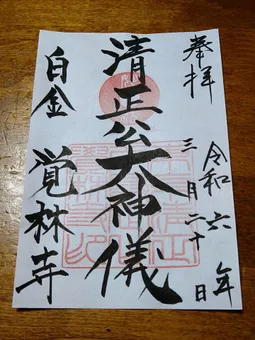 奉拝
令和六年
三月二十日
清正公大神儀
白金
覚林寺